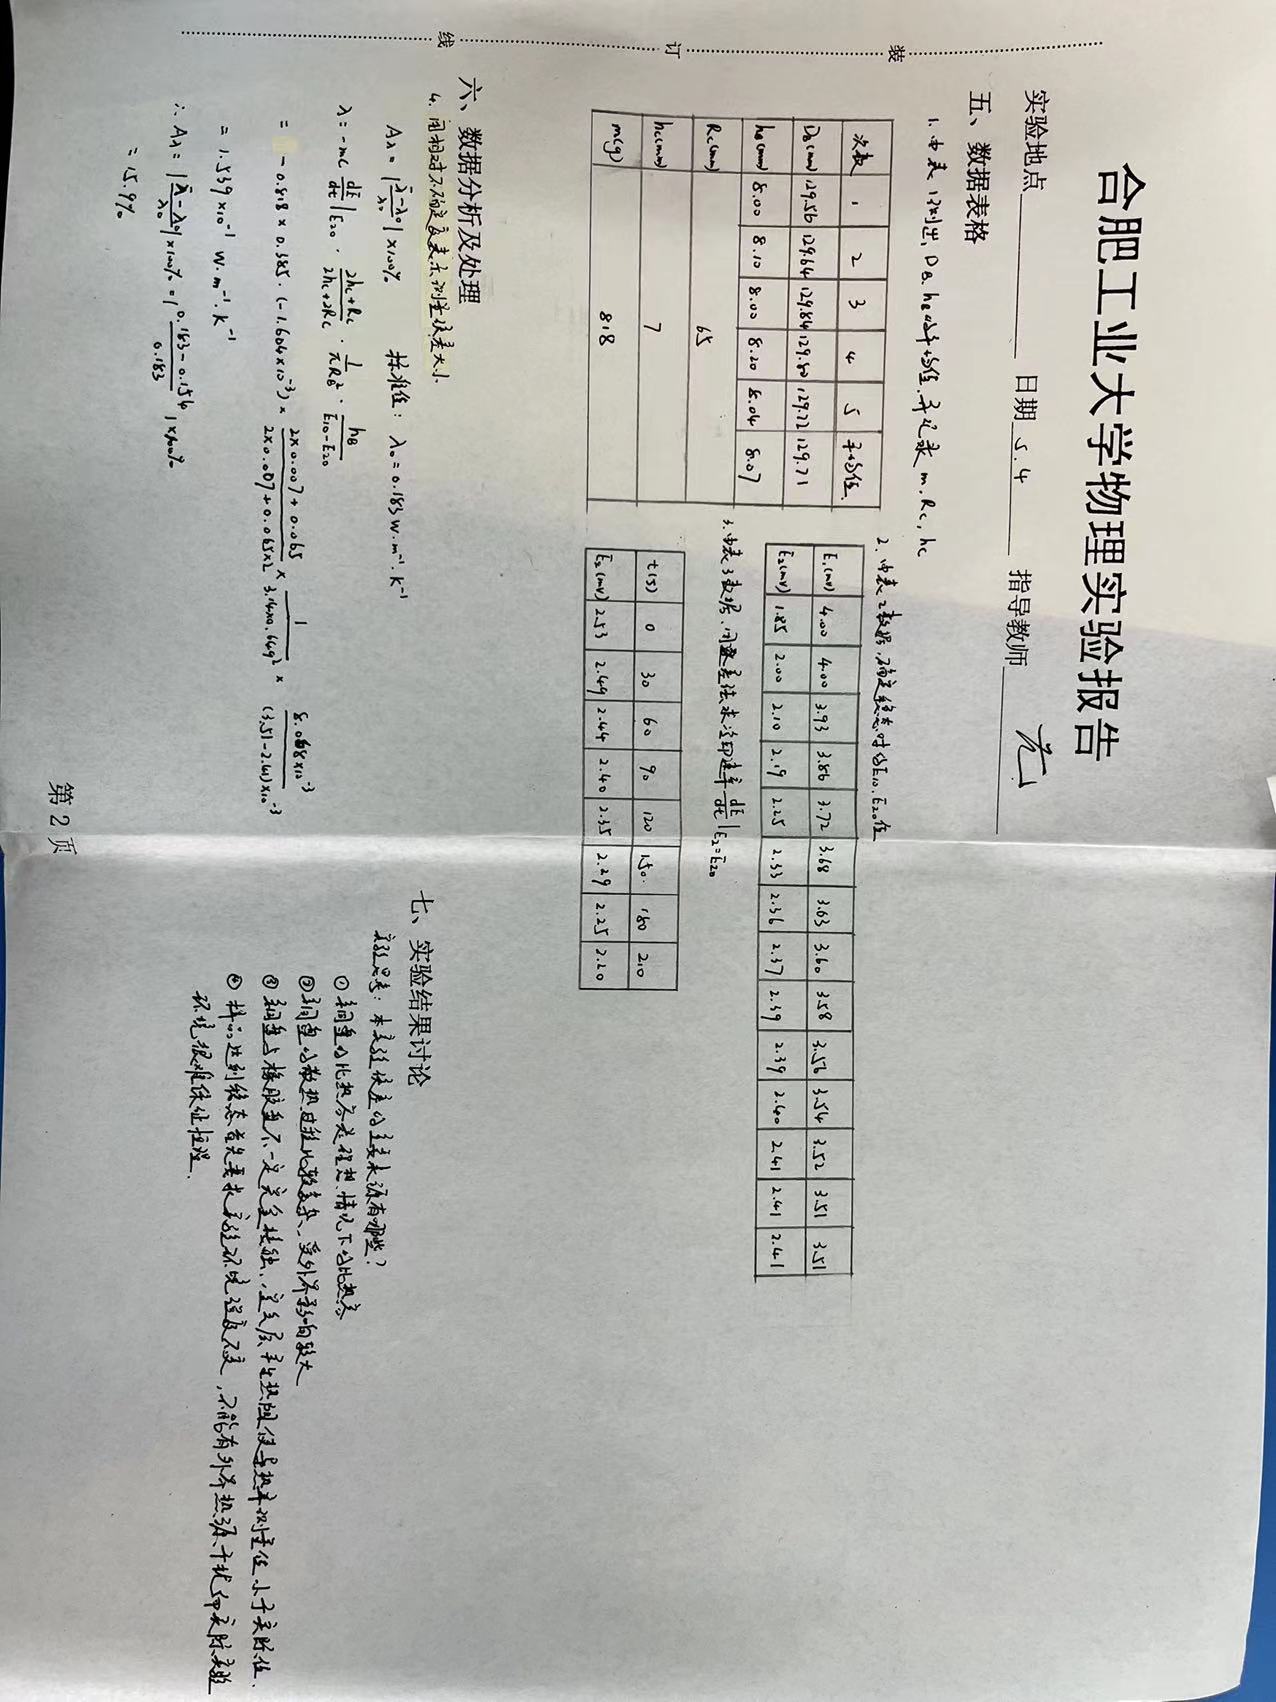 合肥工业大学物理实验报告
实验地点 日期 5.4 指导教师
五、数据表格
1.由表1得出 DB、hB的平均值,并记录 m、Rc、hc
次数 1 2 3 4 5 平均值
DB(mm) 129.56 129.64 129.84 129.80 129.72 129.71
hB(mm) 8.00 8.10 8.00 8.20 8.04 8.07
Rc(mm) 65
hc(mm) 7
m(g) 818
2.由表2数据,确定稳态时的E10、E20值
E1(mV) 4.00 4.00 3.93 3.86 3.72 3.68 3.63 3.60 3.58 3.56 3.54 3.52 3.51 3.51
E2(mV) 1.85 2.00 2.10 2.19 2.25 2.33 2.36 2.37 2.39 2.39 2.40 2.41 2.41 2.41
3.由表3数据,用逐差法求冷却速率 dE/dt|E2=E20
t(s) 0 30 60 90 120 150 180 210
E2(mV) 2.53 2.49 2.44 2.40 2.35 2.29 2.25 2.20
六、数据分析及处理
4.用相对不确定度表示测量误差大小
Aλ = |(λ̄-λ0)/λ0|×100% 标准值:λ0=0.183W·m⁻¹·k⁻¹
λ=-mc dE/dt|E20 · (2hc+Rc)/(2hc+2Rc) · 1/(πRB²) · hB/(E10-E20)
= -0.818×0.385·(-1.604×10⁻³)× (2×0.007+0.065)/(2×0.007+0.065×2) × 1/(3.14×0.649²) × 8.068×10⁻³/((3.51-2.41)×10⁻³)
= 1.539×10⁻¹ W·m⁻¹·k⁻¹
∴ Aλ = |(λ̄-λ0)/λ0|×100% = |(0.183-0.154)/0.183|×100%
= 15.9%
七、实验结果讨论
实验思考:本实验误差的主要来源有哪些?
①铜盘的比热容是理想情况下的比热容
②铜盘的散热过程比较复杂、受外界影响较大
③铜盘与橡胶盘不一定完全接触,空气层产生热阻使导热率测量值小于实际值.
④样品达到稳态首先要求实验环境温度不变,不能有外界热源干扰,而实际实验
环境很难保证恒温.
第2页
装
订
线